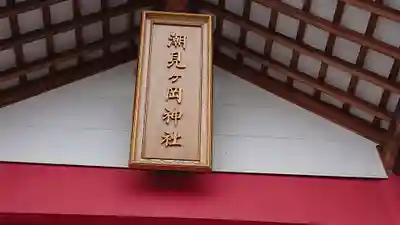 潮見ヶ岡神社